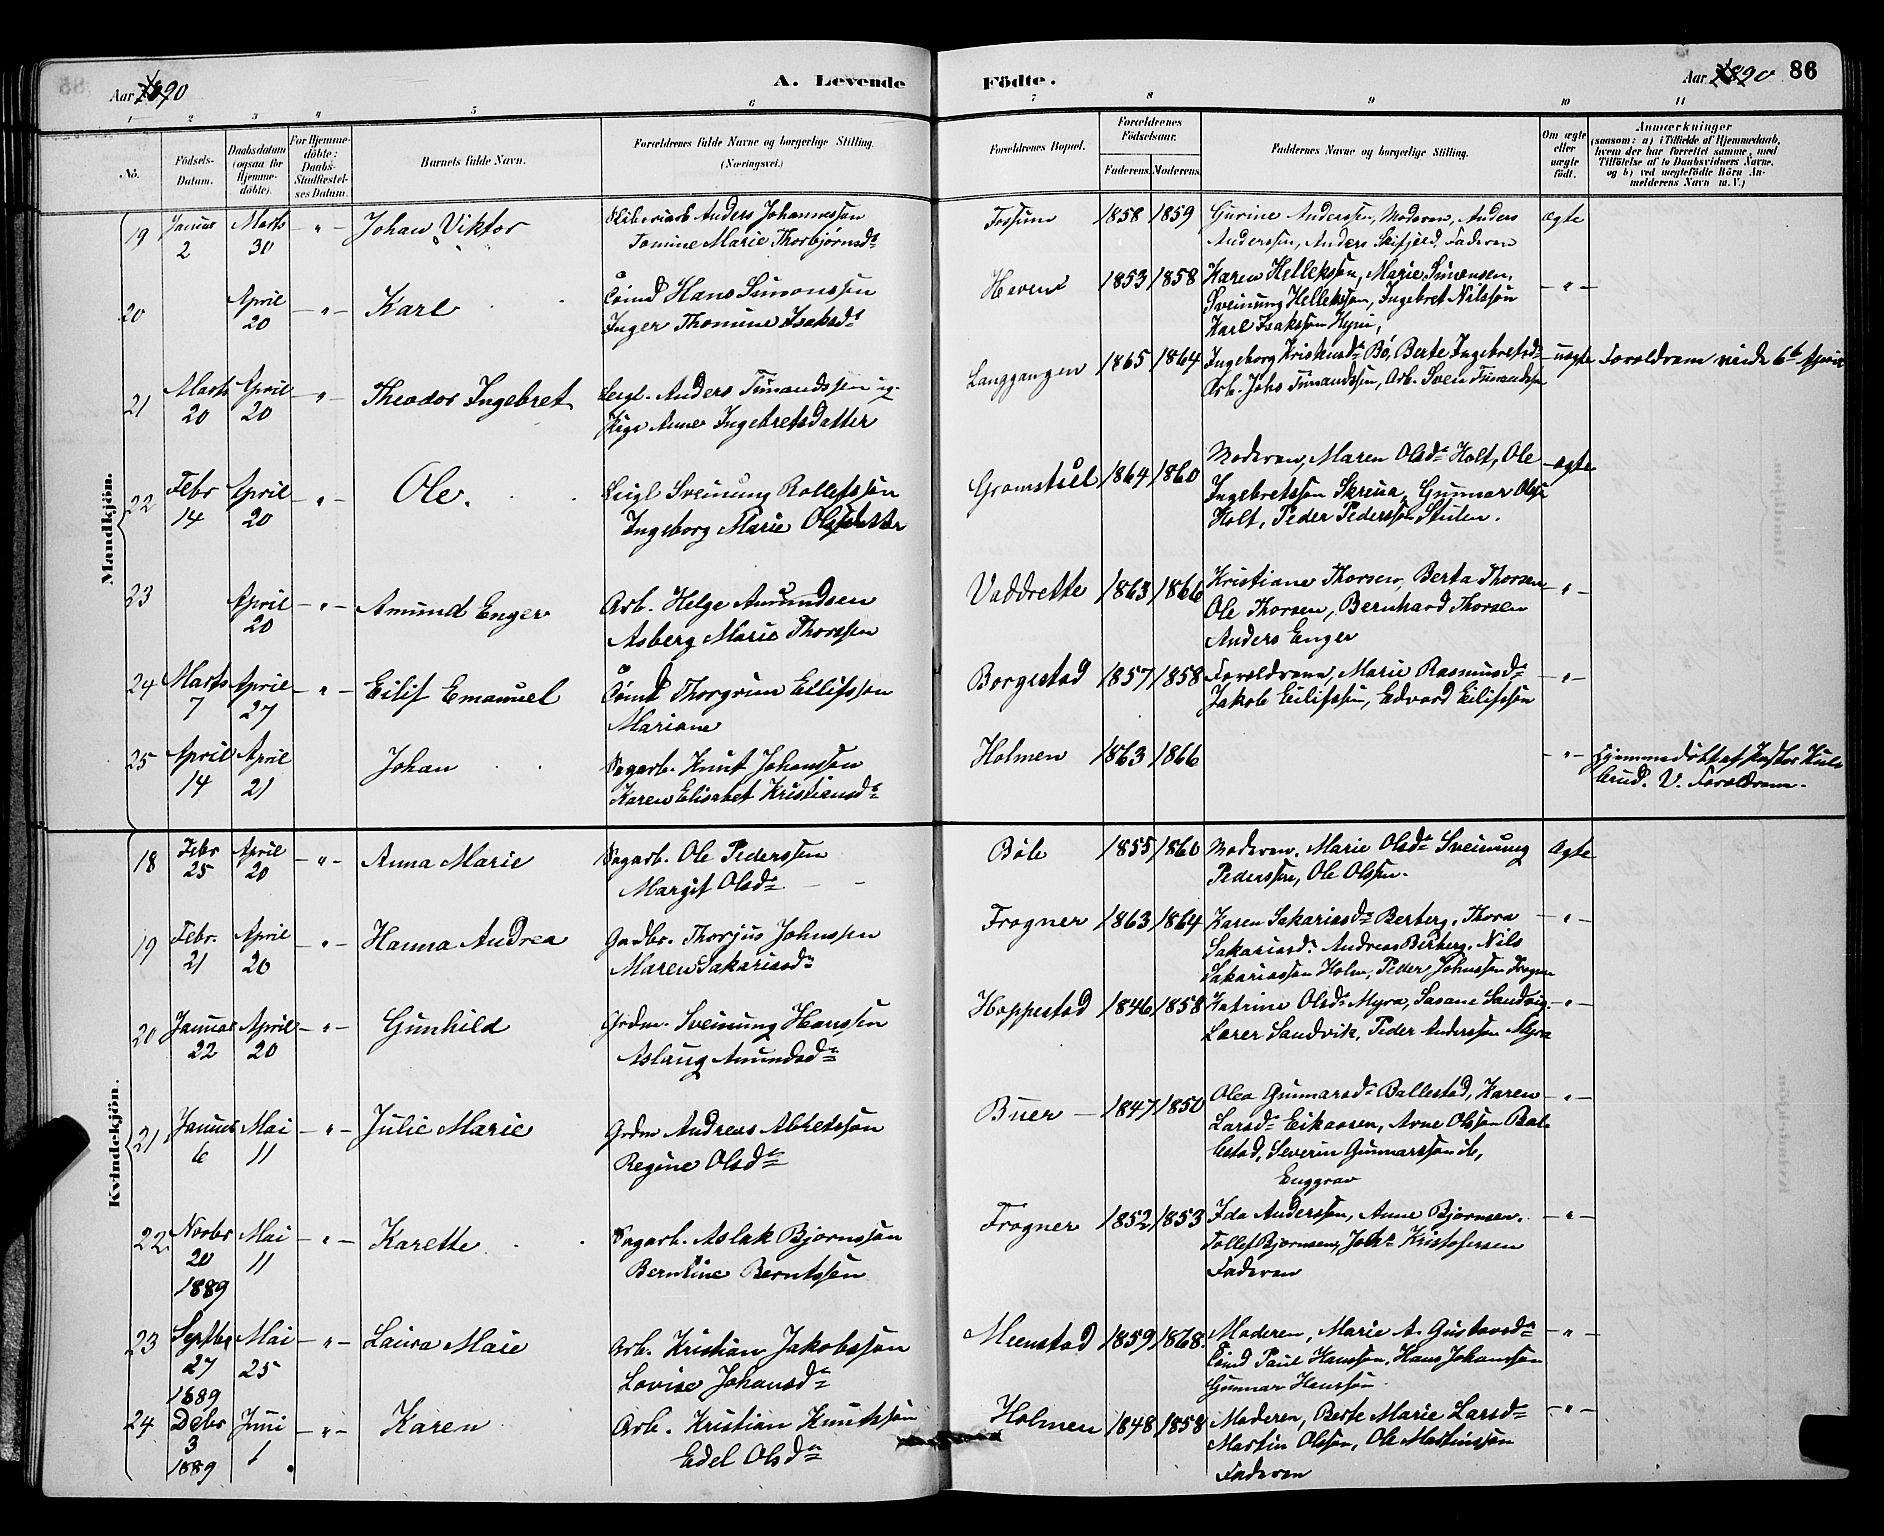 Aar 1890
A. Levende
Födte.
Aar 1890
86
1 2 3 4 5 6 7 8 9 10 11
No.
Födsels-
Datum.
Daabsdatum
(ogsaa for
Hjemme-
döbte).
For Hjemme-
döbte:
Daabs-
Stadfæstel-
ses Datum.
Barnets fulde Navn.
Forældrenes fulde Navne og borgerlige Stilling.
(Næringsvei.)
Forældrenes Bopæl.
Forældrenes
Födselsaar.
Faderens. Moderens.
Faddernes Navne og borgerlige Stilling.
Om ægte
eller
uægte
födt.
Anmærkninger
(saasom: a) i Tilfælde af Hjemmedaab,
hvem der har forrettet samme, med
Tilföielse af to Daabsvidners Navne,
og b) ved uægtefödte Börn An-
melderens Navn m. V.)
Mandkjön.
19 Januar 2 Marts 30 - " - Johan Viktor
Anders Johannessen
Tomine Marie Thorbjørnsd.
Fossum 1858 1859 Gurine Anderssen, Moderen, Anders
Anderssen, Anders Skifjeld, Faderen
ægte
20 April 20 - " - Karl
Hans Simonssen
Inger Thomine Isaksd.
1853 1858 Karen Hellekssen, Marie Simonsen,
Sveinung Hellekssen, Ingebret Nilssen
Karl Isakssen
- " -
21 Marts 20 April 20 - " - Theodor Ingebret
Anders Timandssen og
Pige Anne Ingebretsdatter
Langgangen 1865 1864 Ingeborg Bø, Berte Ingebretsd.
Arb. Johs Timandssen, Arb. Sven Timandssen
uægte Forældrene viede 6te April
22 Febr 14 April 20 - " - Ole.
Seigl Sveinung Rollefssøn
Ingeborg Marie Olsdatter
Gromstul 1864 1860 Moderen, Maren Olsd. Holt, Ole
Ingebretssøn Skreua, Gunnar Olss.
Holt, Peder Pederssøn Stulen.
ægte
23 April 20 - " - Amund Enger
Arb. Helge Amundsen
Asberg Marie Thorssen
Vaddrette 1863 1866 Kristiane Thorsen, Berta Thorsen
Ole Thorsen, Bernhard Thorsen
Anders Enger
- " -
24 Marts 7 April 27 - " - Eilif Emanuel
Tømd Thorgrim Ellifssøn
Mariane
Borgestad 1857 1858 Forældrene, Marie Rasmusd.
Jakob Eilifssøn, Edvard Eilifssøn
- " -
25 April 14 April 21 Johan
Sagarb. Knut Johanssen
Karen Elisabet Kristiansd.
Holmen 1863 1866
- " - Hjemmedøbt af Pastor
V. Forældrene.
Kvindekjön.
18 Febr 25 April 20 - " - Anna Marie
Sagarb. Ole Pederssen
Margit Olsd.
Bøle 1855 1860 Moderen, Marie Olsd. Sveinung
Pederssen, Ole Olssen.
ægte
19 Febr. 21 April 20 - " - Hanna Andrea
Gadbr. Thorjus Johnssen
Maren Sakariasd.
Frogner 1863 1864 Karen Sakariasd. Berberg, Thora
Sakariasd. Andreas Berberg, Nils
Sakariassen Holm, Peder Johnssen Frogner
- " -
20 Januar 22 April 20 - " - Gunhild
Grdm. Sveinung Hanssen
Aslaug Amundsd.
Hoppestad 1846 1858 Katrine Olsd. Myra, Susane Sandvig
Lorer Sandvik, Peder Anderssen Myra
- " -
21 Januar 6 Mai 11 - " - Julie Marie
Grdm Andreas Abletssøn
Regine Olsd.
Buer 1847 1850 Olea Gunnarsd. Ballestad, Karen
Larsd. Eikaasen, Arne Olssen Bal-
lestad, Severin Gunnarssøn ib,
Enggrav
- " -
22 Novbr 20 1889 Mai 11 - " - Karette
Sagarb. Aslak Bjornssøn
Berntine Berntssen
Frogner 1852 1853 Ida Anderssen, Anne Bjornsen.
Tollef Bjornsen, Johs Kristofersen
Faderen
- " -
23 Septbr 27 1889 Mai 25 - " - Laura Maie
Arb. Kristian Jakobssøn
Lovise Johansd.
Menstad 1859 1868 Moderen, Marie A. Gustavsd.
Tømd Paul Hanssøn, Hans Johanssøn
Gunnar Hanssøn
- " -
24 Debr 3 1889 Juni 1 - " - Karen
Arb. Kristian Knutssøn
Edel Olsd.
Holmen 1848 1858 Moderen, Berte Marie Larsd.
Martin Olssøn, Ole Martinssøn
Faderen
- " -